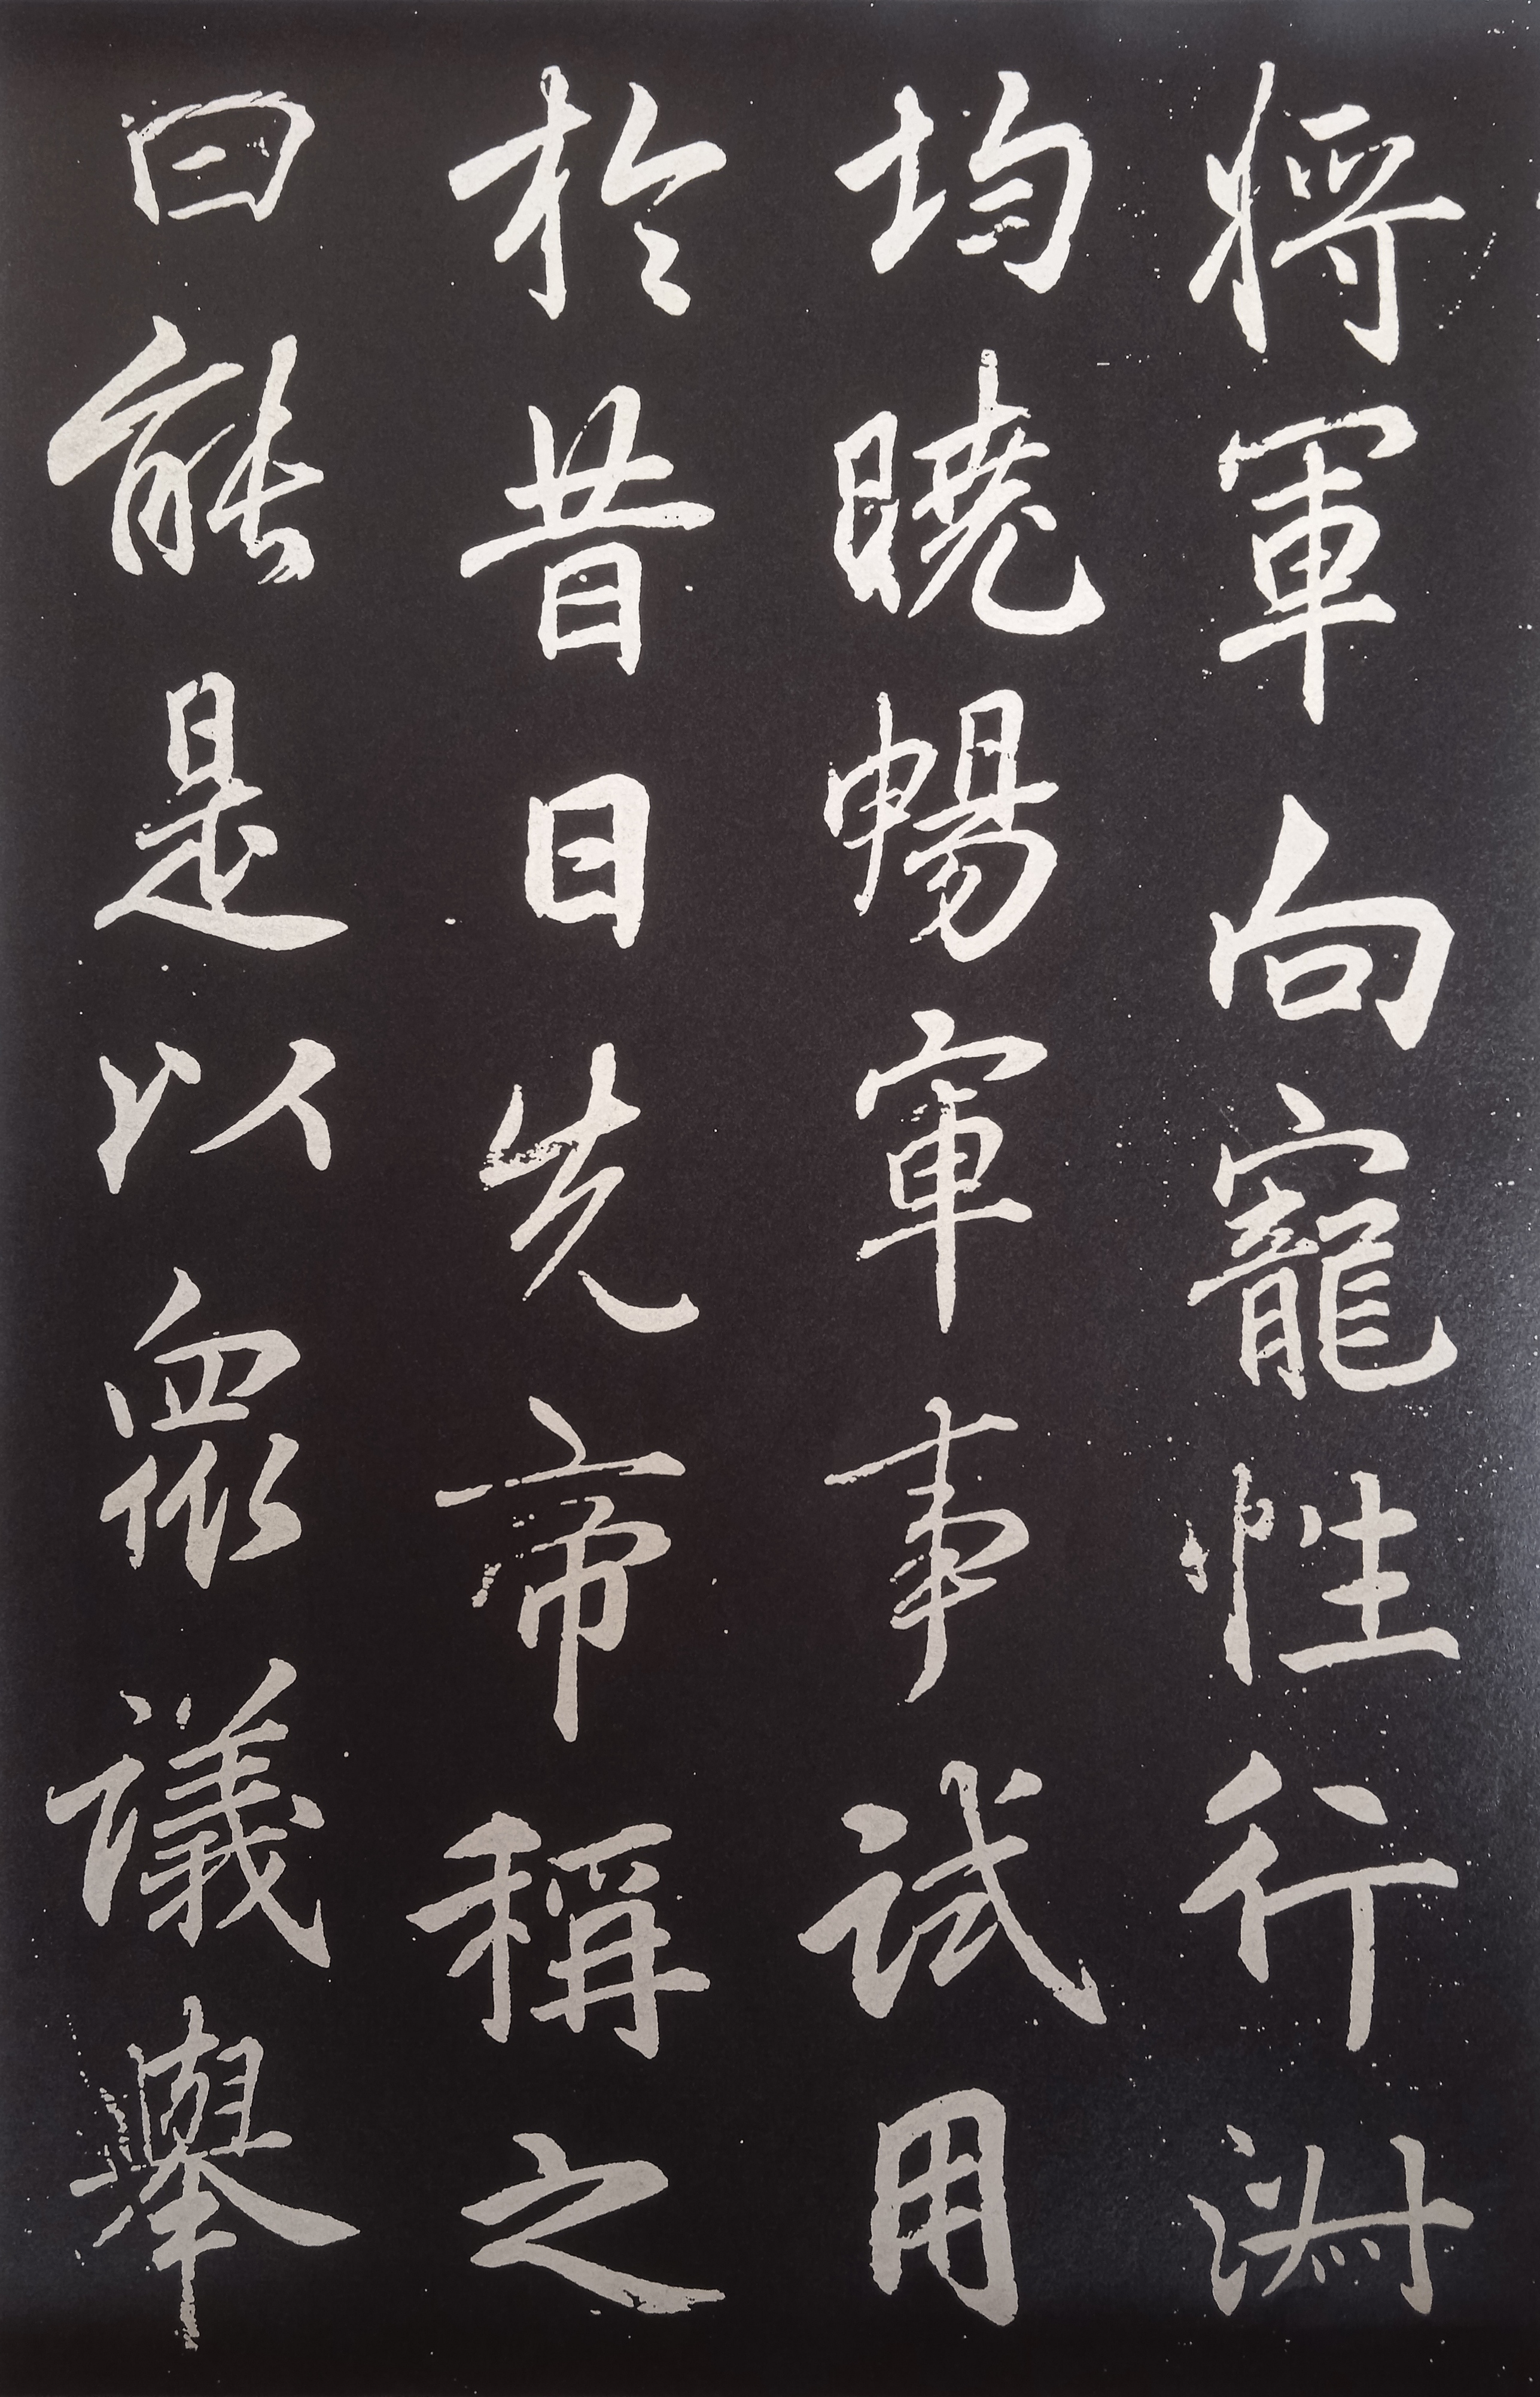 將軍向寵性行淑
均曉暢軍事試用
於昔日先帝稱之
曰能是以衆議舉